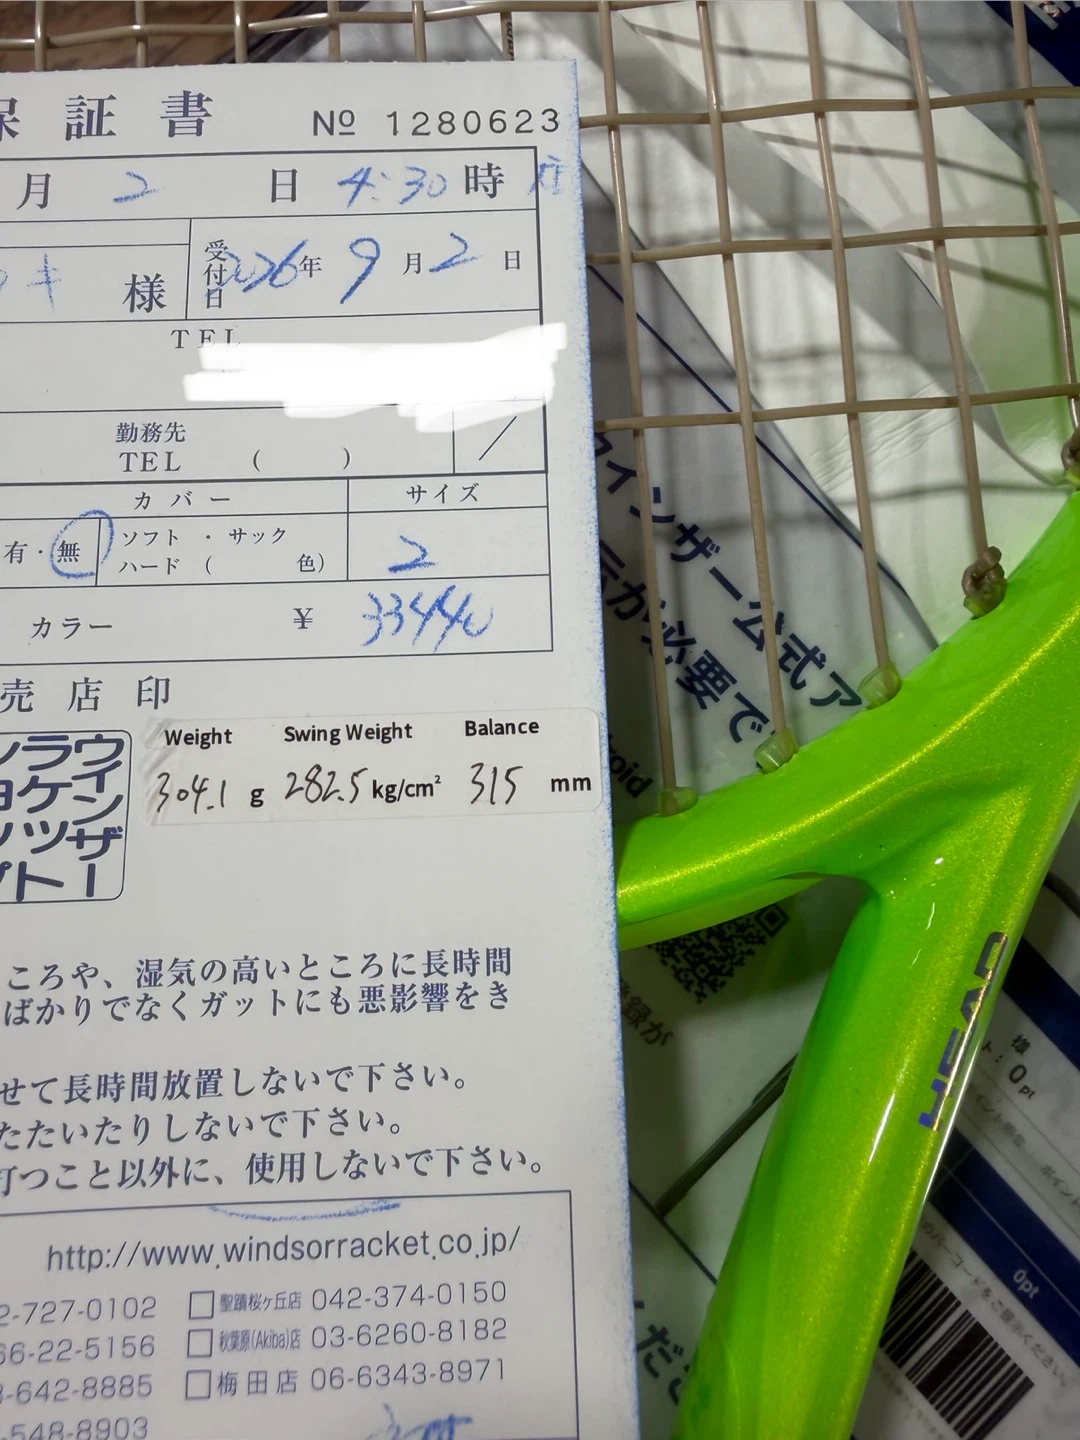 保証書 № 1280623
月 2 日 4:30 時
様 受付日 2026年 9月2日
TEL
勤務先
TEL ( )
カバー サイズ
有・無 ソフト・サック
ハード( 色) 2
カラー ¥ 33440
売店印
Weight Swing Weight Balance
304.1 g 282.5 kg/cm² 315 mm
ウインザー
ラケット
ころや、湿気の高いところに長時間
ばかりでなくガットにも悪影響をき
せて長時間放置しないで下さい。
たたいたりしないで下さい。
打つこと以外に、使用しないで下さい。
http://www.windsorracket.co.jp/
2-727-0102 □聖蹟桜ヶ丘店 042-374-0150
66-22-5156 □秋葉原(Akiba)店 03-6260-8182
3-642-8885 □梅田店 06-6343-8971
-548-8903
インザー公式ア
が必要で
oid
登録が
HEAD
様
ト: 0pt
0pt
のバーコードをご提示ください。